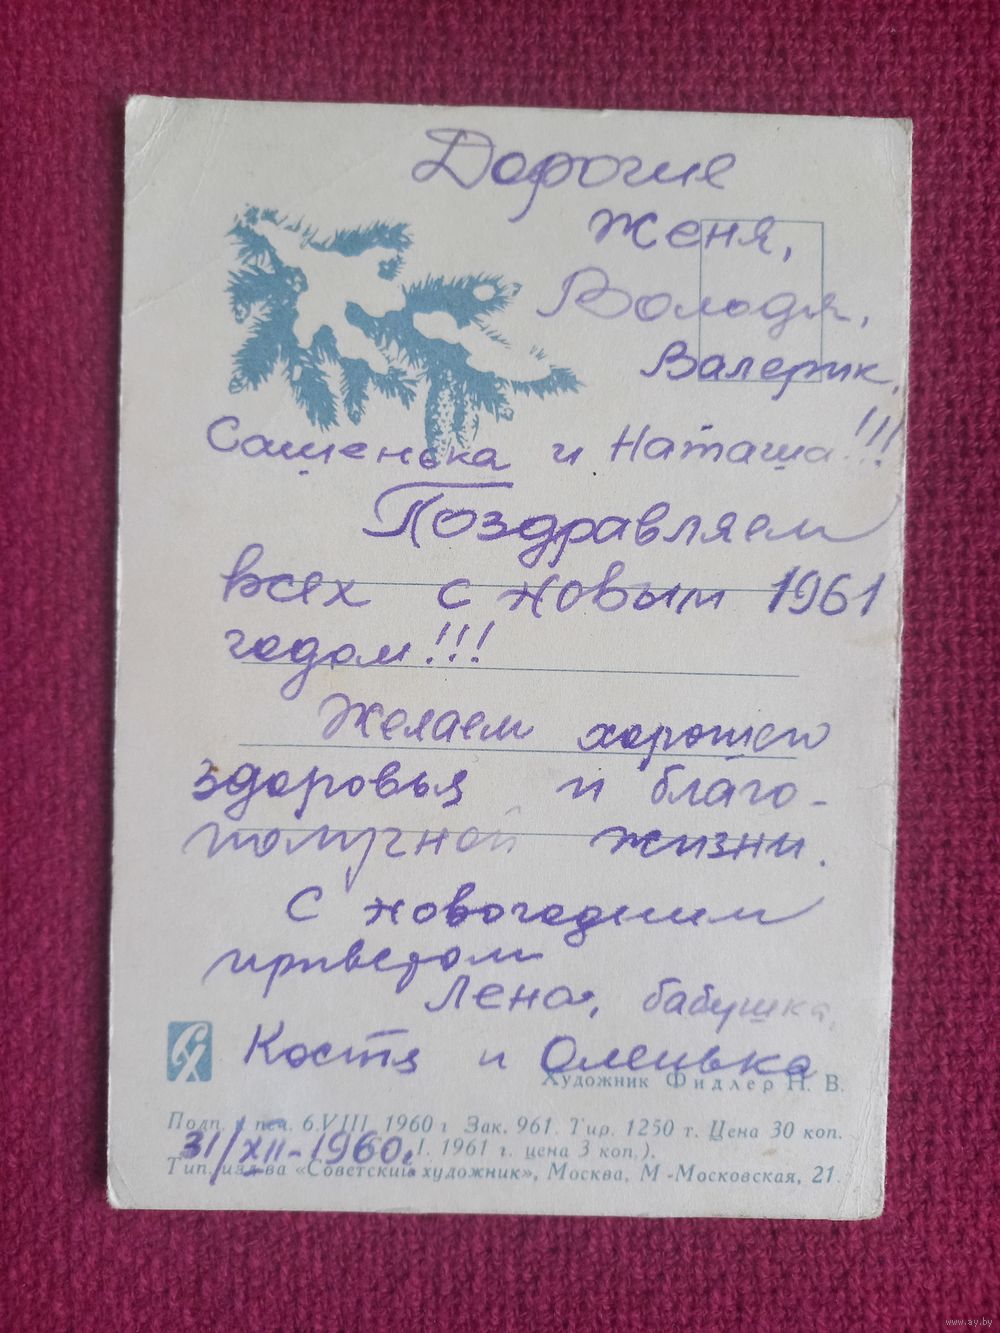 Дорогие
Женя,
Володя,
Валерик,
Сашенька и Наташа!!!
Поздравляем
всех с новым 1961
годом!!!
Желаем хорошего
здоровья и благо-
получной жизни.
С новогодним
приветом
Лена, бабушка,
Костя и Оленька
Художник Фидлер Н. В.
Подп. к печ. 6.VIII. 1960 г. Зак. 961. Тир. 1250 т. Цена 30 коп.
31/XII-1960г. I. 1961 г. цена 3 коп.).
Тип. изд-ва «Советский художник», Москва, М-Московская, 21.
www.ay.by